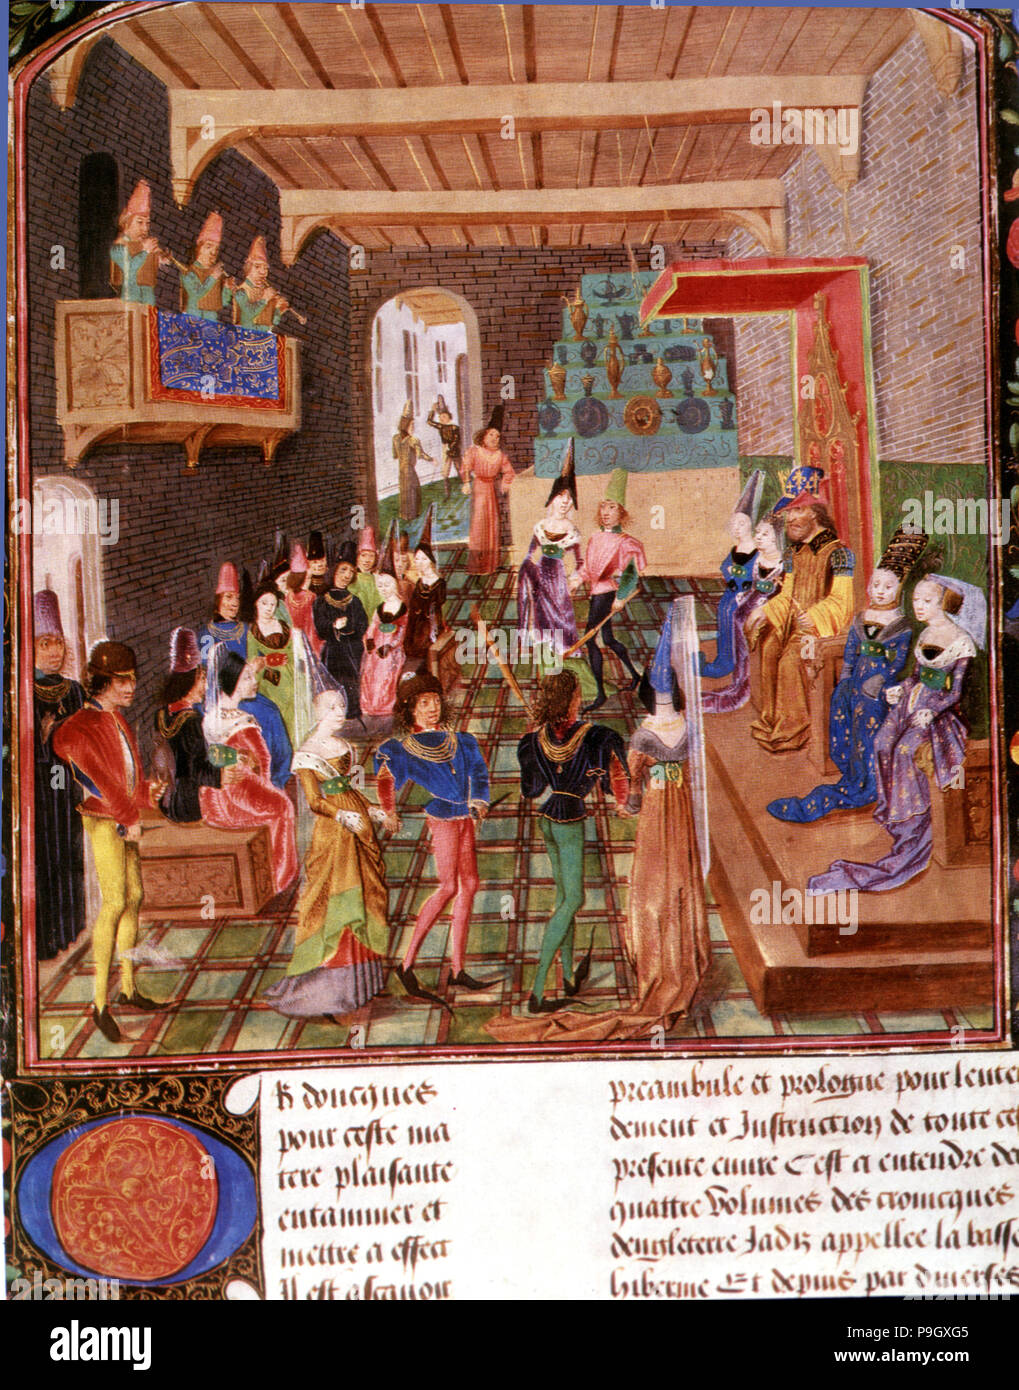 R doncques
pour ceste ma
tere plaisante
entammer et
mettre a effect
Il est ascavoir
preambule et prologue pour lenten
dement et Instruction de toute ces
presente euure Cest a entendre des
quattre Volumes des cronicques
dengleterre Jadiz appellee la basse
hibernie Et depuis par diuerses
alamy
Image ID: P9GXG5
www.alamy.com